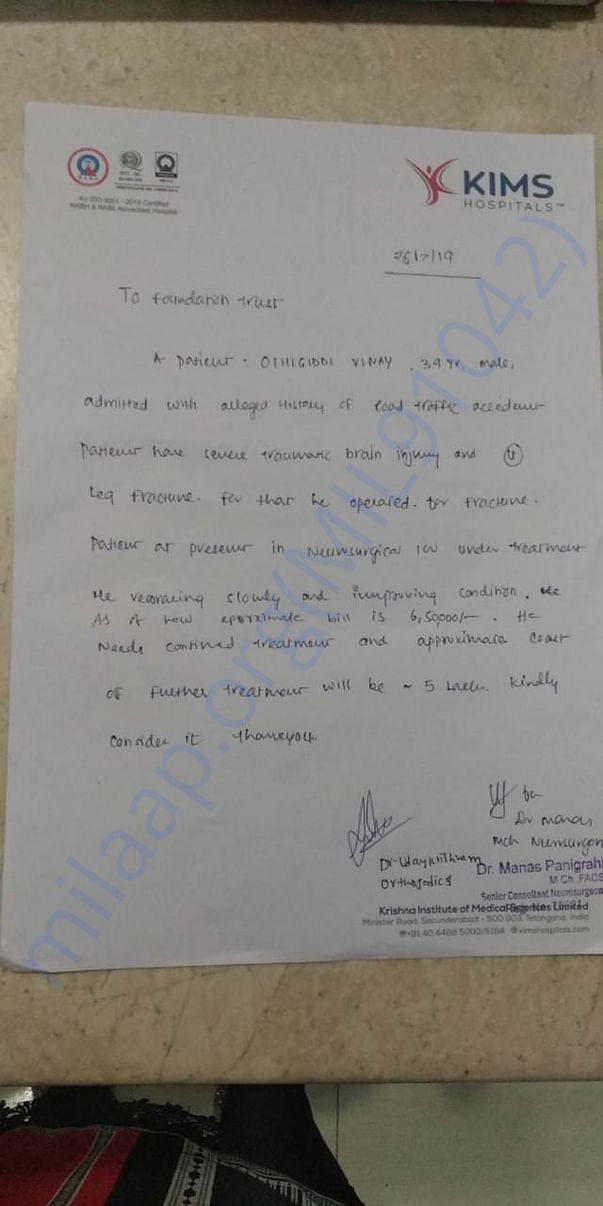 An ISO 9001 : 2015 Certified
NABH & NABL Accredited Hospital
KIMS
HOSPITALS™
26/7/19
To Foundation trust
A patient . OTHIGIDDI VINAY , 39 yr, male,
admitted with alleged History of Road traffic accident
patient have severe traumatic brain injury and
Leg fracture. for that he operated. for fracture.
Patient at present in Neurosurgical ICU under treatment
He recovering slowly and improving condition. He
As of now aproximate bill is 6,50,000/- . He
Needs contined treatment and approximate cost
of further treatment will be ~ 5 Lakh. Kindly
consider it thankyou.
for
Dr manas
Mch Neurosurgon
Dr. Manas Panigrahi
M.Ch. FACS
Senior Consultant Neurosurgeon
Dr-Udaykrithnam
Orthopedics
Krishna Institute of Medical Sciences Limited
Minister Road, Secunderabad - 500 003, Telangana, India
+91 40 4488 5000/5184 kimshospitals.com
milaap.org(MIL91042)